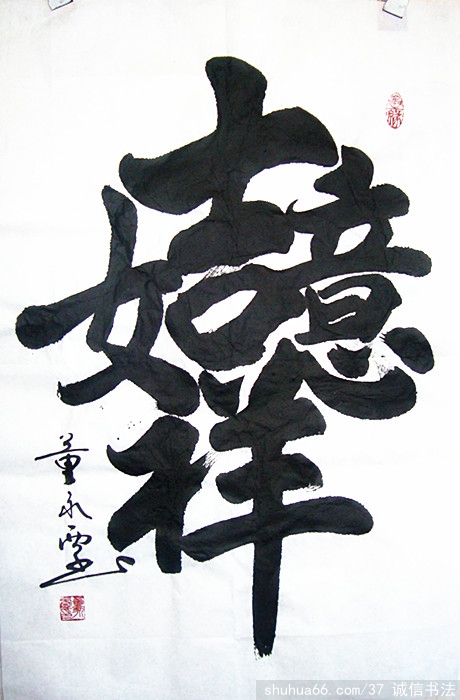 吉祥如意
董永
shuhua66.com/37 诚信书法